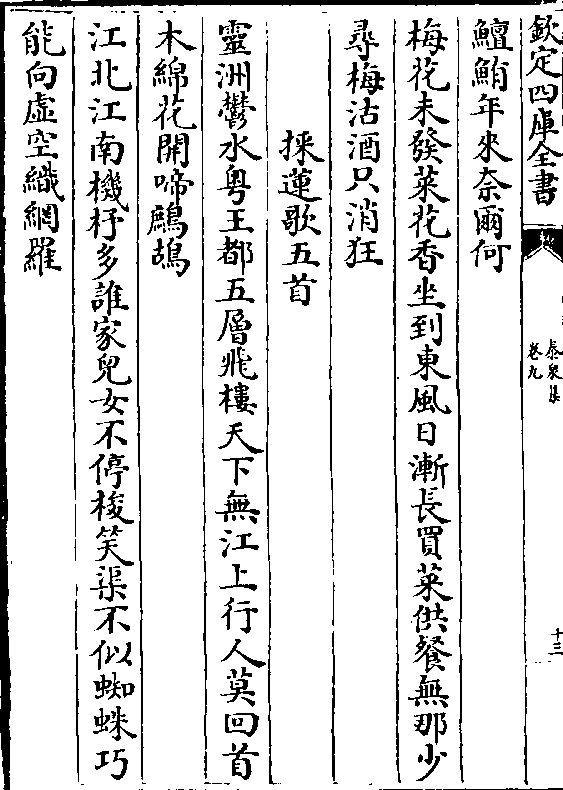 欽定四庫全書
泰泉集
卷九
十三
鱣鮪年來奈爾何
梅花未發菜花香坐到東風日漸長買菜供餐無那少
尋梅沽酒只消狂
採蓮歌五首
靈洲鬱水粤王都五層飛樓天下無江上行人莫回首
木綿花開啼鷓鴣
江北江南機杼多誰家兒女不停梭笑渠不似蜘蛛巧
能向虚空織網羅